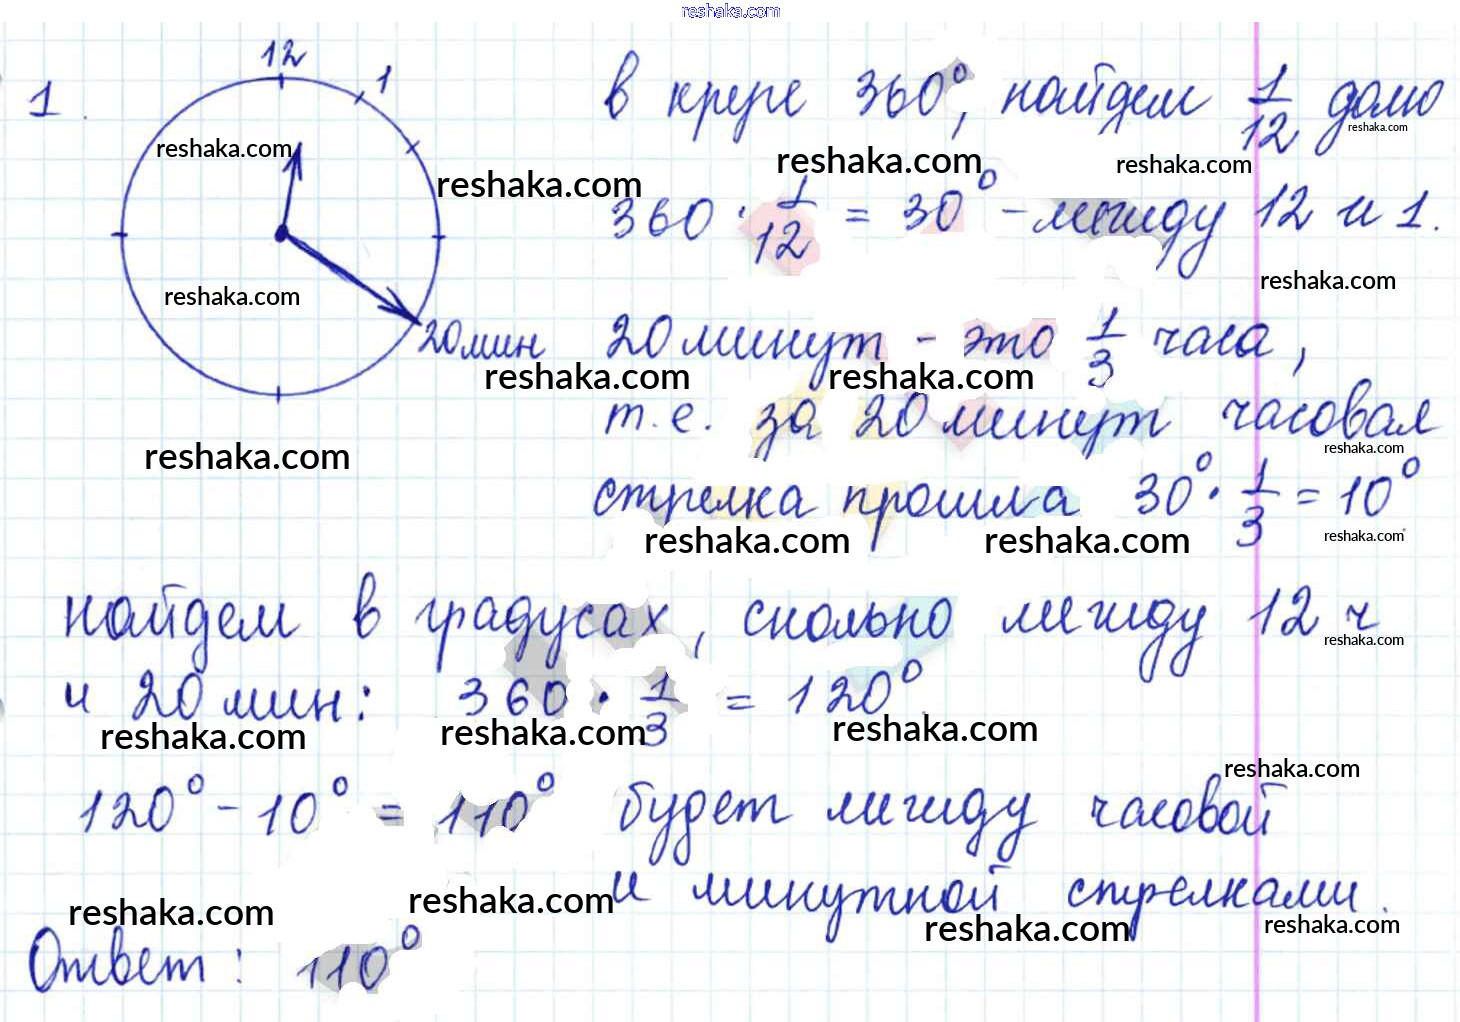 reshaka.com
12
1
1.
в круге 360°, найдем 1/12 долю
reshaka.com
reshaka.com
reshaka.com
reshaka.com
reshaka.com
360 · 1/12 = 30° - между 12 и 1.
reshaka.com
reshaka.com
20 мин
20 минут - это 1/3 часа,
reshaka.com
reshaka.com
т.е. за 20 минут часовая
reshaka.com
reshaka.com
стрелка прошла 30° · 1/3 = 10°
reshaka.com
reshaka.com
reshaka.com
найдем в градусах, сколько между 12 ч
reshaka.com
и 20 мин: 360 · 1/3 = 120°.
reshaka.com
reshaka.com
reshaka.com
reshaka.com
120° - 10° = 110° будет между часовой
и минутной стрелками.
reshaka.com
reshaka.com
reshaka.com
reshaka.com
Ответ: 110°